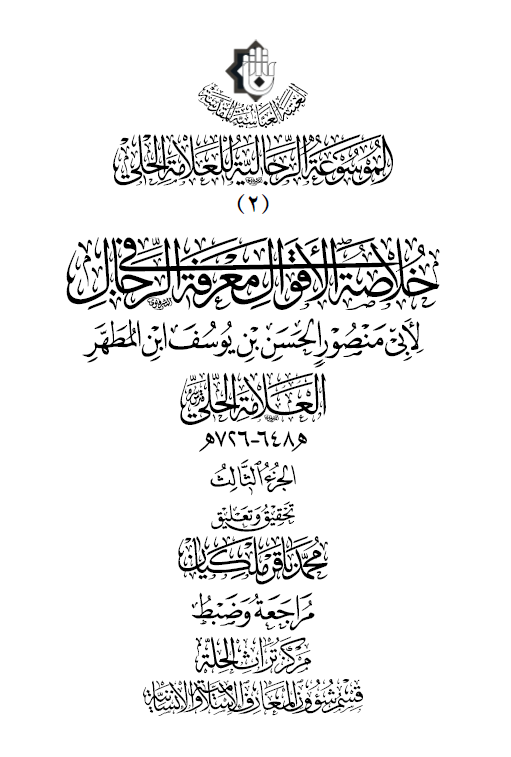 العتبة العباسية المقدسة
المُوسُوعَةُ الرِّجَالِيَّةُ لِلعَلَّامَةِ الحِلِّي
(٢)
خُلَاصَةُ الأَقْوَالِ فِي مَعْرِفَةِ الرِّجَالِ
لِأَبِيْ مَنْصُوْرٍ الحَسَنِ بْنِ يُوسُفَ ابْنِ المُطَهَّرِ
العَلَّامَةِ الحِلِّيِّ
٦٤٨-٧٢٦هـ
الجُزءُ الثَّالِثُ
تَحْقِيْقُ وَتَعْلِيْق
مُحَمَّد بَاقِر مَلَكِيَان
مُرَاجَعَةُ وَضَبْطُ
مَرْكَزِ تُرَاثِ الحِلَّةِ
قِسْمُ شُؤُونِ المَعَارِفِ الإِسْلَامِيَّةِ وَالإِنْسَانِيَّةِ